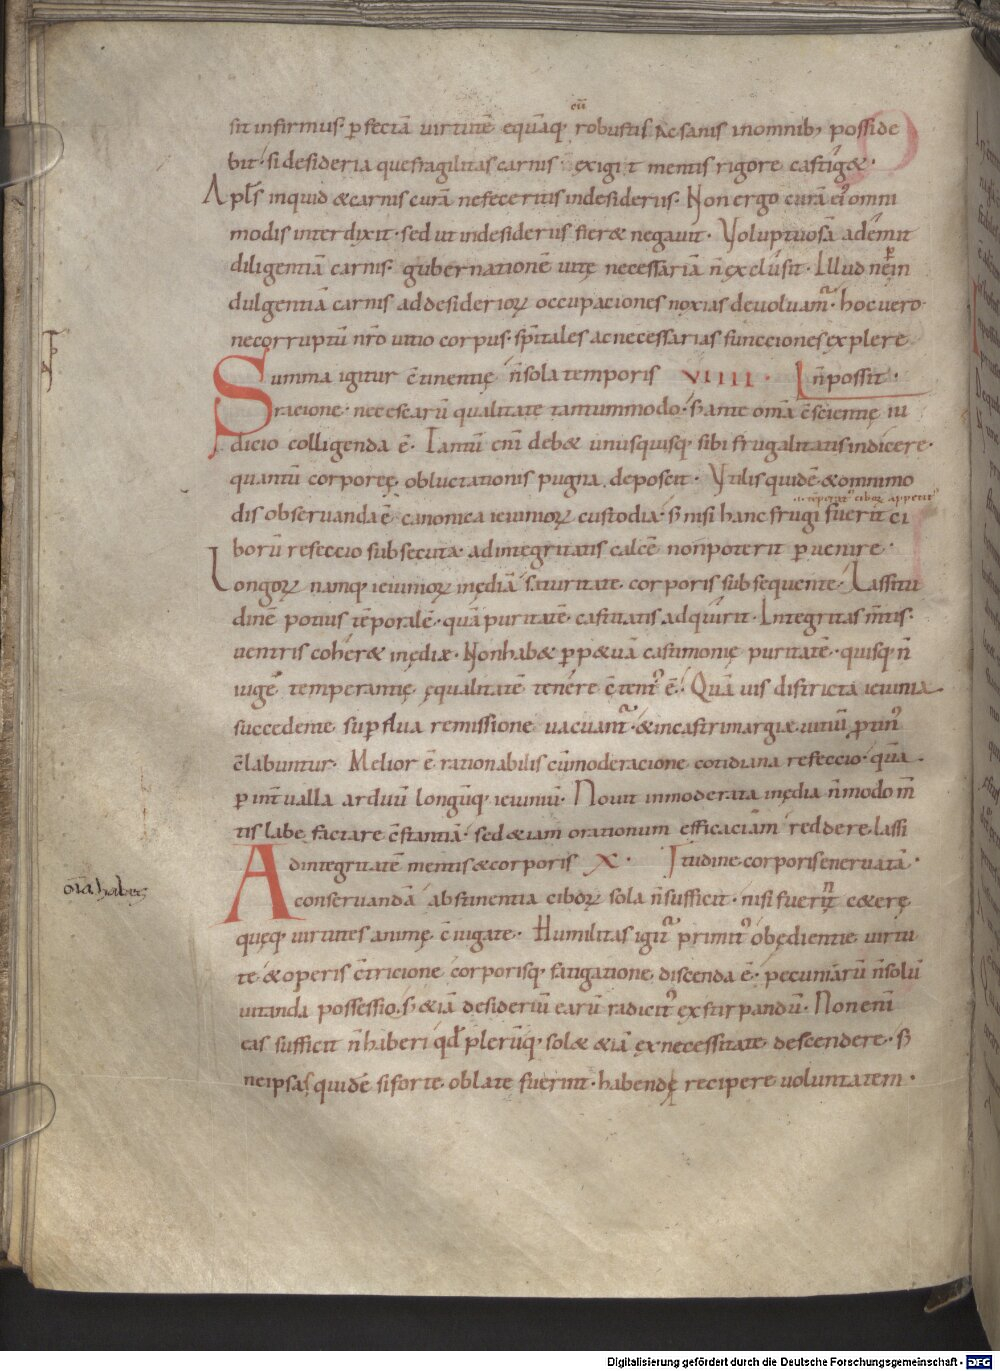 eū
sit infirmus· pfectā uirtutē equāq; robustis Ac sanis inomnib; posside
bit· si desideria que fragilitas carnis exigit mentis rigore castig&·
Apl̄s inquid &carnis curā nefeceritis indesideriis· Non ergo curā ei᾽ omni
modis interdixit· sed ut indesideriis fier& negauit· Voluptuosā ademit
diligentiā carnis· gubernationē uitę necessariā n̄ exclusit· Illud nep̄ in
dulgentiā carnis addesiderioꝝ occupaciones noxias deuoluam᷑· hoc uero
necorruptū nr̄o uitio corpus· sp̄itales acnecessarias funcciones explere
Summa igitur c̄tinentię n̄ sola temporis VIIII· n̄ possit·
racione· nec escarū qualitate tantummodo· s; ante om̄a c̄scientię iu
dicio colligenda ē· Tantū eni᷑ deb& unusquisq; sibi frugalitatis indicere·
quantū corporeę obluctationis pugna deposcit· Vtilis quidē &omnimo
dis obseruanda ē canonica ieiunioꝝ custodia· s; nisi hanc frugi fuerit ci
borū refeccio subsecuta· adintegritatis calcē nonpoterit puenire·
Longoꝝ namq; ieiunioꝝ inędiā saturitate corporis subsequente· Lassitu
dinē potius tēporalē· quā puritatē castitatis adquirit· Integritas m̄tis·
uentris coher& inędiæ· Nonhab& pp&uā castimonię puritatē· quisq; n̄
iugē temperantię ęqualitatē tenere c̄tent᾽ ē· Quā uis districta ieiunia
succedente supflua remissione uacuant᷑· &incastrimargiæ uitiū ptin᾽
c̄labuntur· Melior ē rationabilis cū moderacione cotidiana refeccio· quā
p int᷑ualla arduū longūq; ieiuniū· Nouit inmoderata inędia n̄modo m̄
tis labefactare c̄stantiā· sed &iam orationum efficaciām reddere lassi
Adintegritatē mentis &corporis X· tudine corporis eneruatā·
conseruandā abstinentia ciboꝝ sola n̄sufficit· nisi fuerin̄t c&erę
quęq; uirtutes animę c̄iugate· Humilitas igit᷑ primit᾽ obędientie uirtu
te &operis c̄tricione corporisq; fatigatione discenda ē· pecuniarū n̄solū
uitanda possessio, s; &iā desideriū earū radicit᾽ exstirpandū· Non eni᷑
eas sufficit n̄ haberi qd̄ plerūq; sol& &iā exnecessitate descendere· s;
neipsas quidē siforte oblate fuerint· habendę recipere uoluntatem·
om̄ia habes